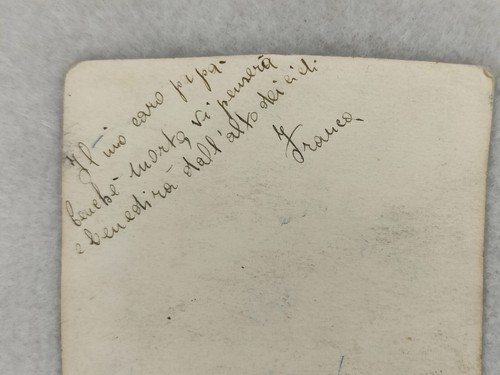 Il mio caro papà
benché morto, vi penserà
e benedirà dall'alto dei cieli
Franca.